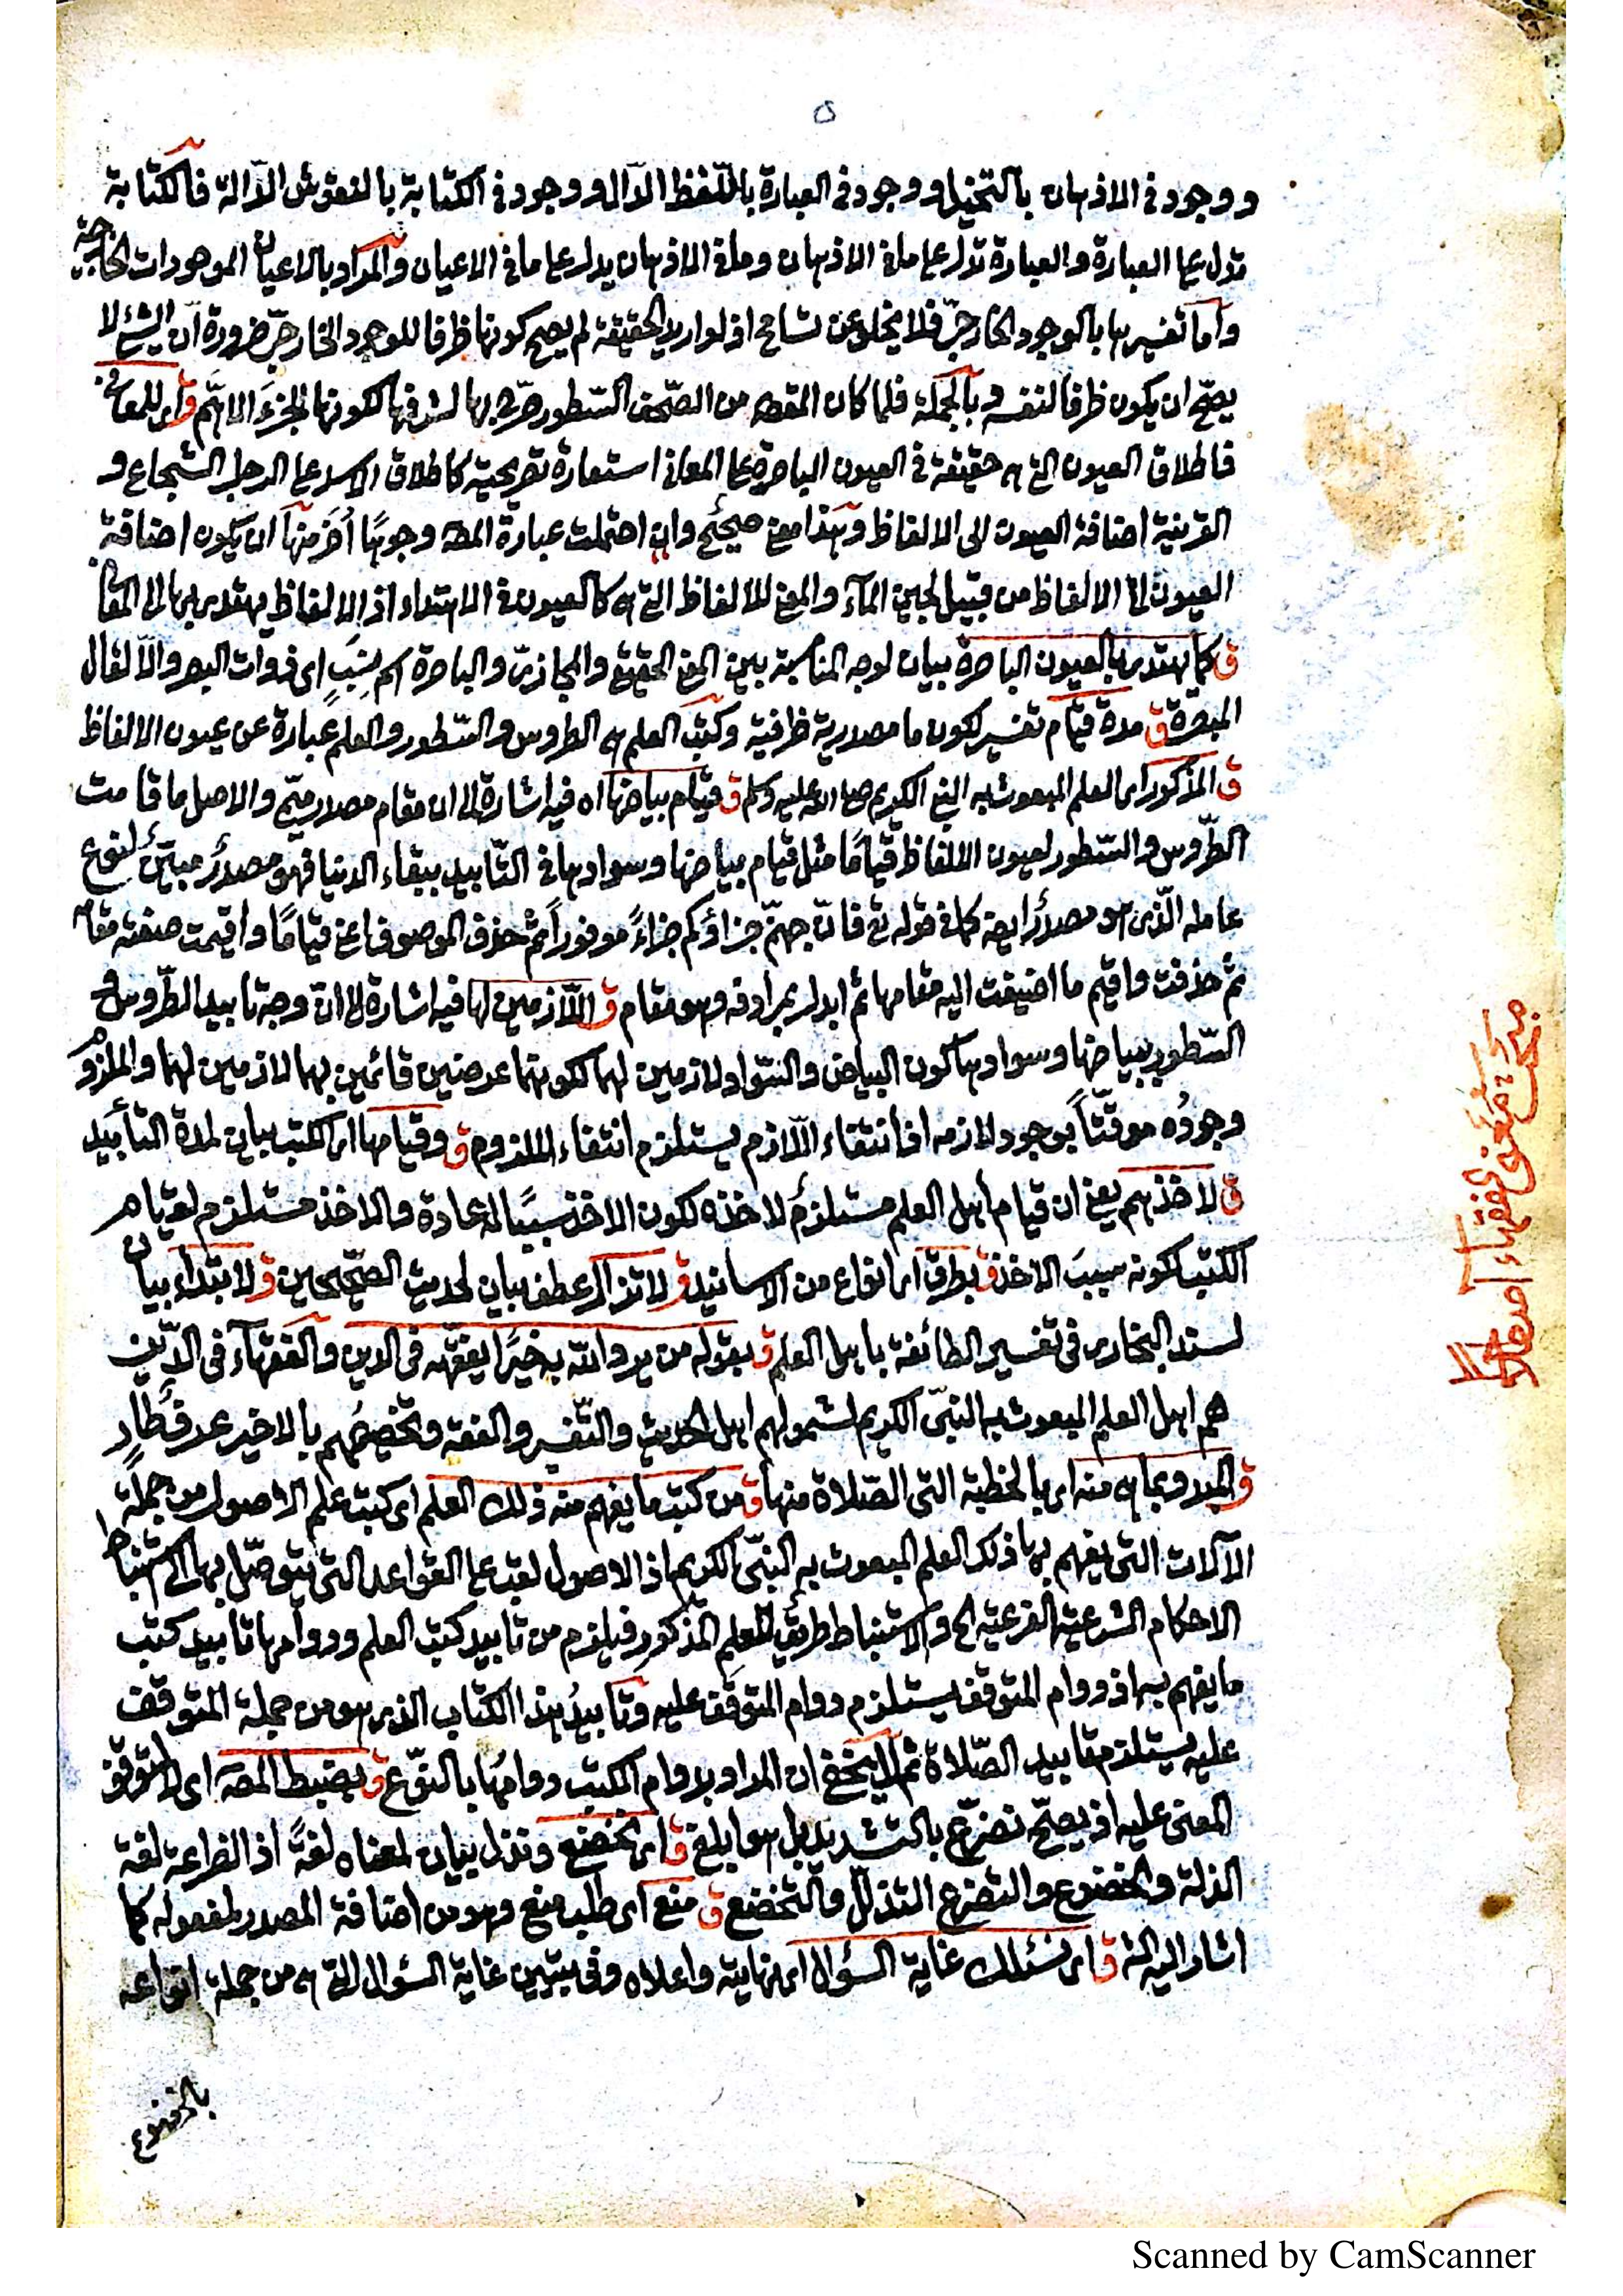 ٥
ووجود فى الاذهان بالتخيل ووجود فى العبارة باللّفظ الدّال ووجود فى الكتابة بالنقوش الدّالة فالكتابة
تدل على العبارة والعبارة تدل على ما فى الاذهان وما فى الاذهان يدل على ما فى الاعيان والمراد بالاعيان الموجودات الخارجية
وأما تفسيرها بالوجود الخارجىّ فلا يخلو عن تسامح اذ لو اريد الحقيقة لم يصح كونها ظرفا للوجود الخارجىّ ضرورة انّ الشئ لا
يصحّ ان يكون ظرفا لنفسه وبالجملة فلما كان المقصد من الصّحف السّطور صرّح بها لشرفها لكونها الجزءَ الاهمّ ق اى للمعانى
فاطلاق العيون التى هى حقيقة فى العيون الباصرة على المعانى استعارة تصريحية كاطلاق الاسد على الرجل الشجاع و
القرينة اضافة العيون الى الالفاظ وهذا معنى صحيحٌ وان احتملت عبارة المصـ وجوهًا أُخَر منها ان يكون اضافة
العيون الى الالفاظ من قبيل لجين المآء والمعنى للالفاظ التى هى كالعيون فى الاهتداء اذ الالفاظ يهتدى بها الى المعانى
ق كما يهتدى بالعيون الباصرة بيان لوجه المناسبة بين المعنى الحقيقى والمجازىّ والباصرة اسم نِسَبٍ اى ذوات البصر والّا لقال
المبصرة ق مدة قيام تفسير لكون ما مصدرية ظرفية وكتب العلم هى الطروس والسّطور والعلم عبارة عن عيون الالفاظ
ق المذكور اى العلم المبعوث به النبى الكريم صلى الله عليه وسلم ق قيام بياضها اه فيه اشارة الى ان مقام مصدر ميمىّ والاصل ما قامت
الطّروس والسّطور لعيون الالفاظ قيامًا مثل قيام بياضها وسوادها فى التّأبيد ببقاء الدنيا فهو مصدرٌ مبيّنٌ لنوع
عامله الّذى هو مصدرٌ ايضا كما فى قوله تع فانّ جهنّم جزاؤكم جزاءً موفوراً ثم حذف الموصوف اعنى قيامًا واقيمت صفته مقامه
ثم حذفت واقيم ما اضيفت اليه مقامها ثم ابدل بمرادفه وهو مقام ق اللّازمين لها فيه اشارة الى انّ وجه تأبيد الطّروس و
السّطور ببياضها وسوادها كون البياض والسّواد لازمين لهما لكونهما عرضين قائمين بهما لازمين لهما والملزوم
وجودُه موقّتاً بوجود لازمه اذ انتفاء اللّازم يستلزم انتفاء الملزوم ق وقيامها اى الكتب بيان لمدة التأبيد
ق لاخذهم يعنى ان قيام أهل العلم مستلزمٌ لاخذه لكون الاخذ سببًا له عادة والاخذ مستلزم لقيام
الكتب لكونه سبب الاخذ ق بطرق اى انواع من الاسانيد ق لا تزال عطف بيان لحديث الصّحيحين ق لابتداء بيان
لسند البخارى فى تفسير الطائفة باهل العلم ق بقوله من يرد الله به خيرًا يفقّهه فى الدين والفقهآء فى الدّين
هم اهل العلم المبعوث به النبىّ الكريم لشمولهم اهل الحديث والتّفسير والفقه وتخصيصُهم بالاخير عرف طارٍ
ق المبدو بما هى منه اى بالخطبة التى الصّلاة منها ق من كتب ما يفهم منه ذلك العلم اى كتب علم الاصول من جملة
الآلات التى يفهم بها ذلك العلم المبعوث به النبىّ الكريم اذ الاصول لقب على القواعد التى يتوصّل بها الى استنباط
الاحكام الشرعية الفرعية الخ والاستنباط طريقٌ للعلم المذكور فيلزم من تأبيد كتب العلم ودوامها تأبيد كتب
ما يفهم به اذ دوام المتوقف يستلزم دوام المتوقَف عليه وتأبيدُ هذا الكتاب الذى هو من جملة المتوقف
عليه يستلزم تأبيد الصّلاة ثم لا يخفى ان المراد بدوام الكتب دوامُها بالنوّع ق بضبط المصـ اى لا لتوقف
المعنى عليه اذ يصحّ نضرّع بالتشديد بل هو ابلغ ق اى نخضع ونذل بيان لمعناه لغةً اذ الضراعة لغة
الذلة والخضوع والتضرع التذلّل والتخضع ق منع اى طلب منع وهو من اضافة المصدر لمفعوله كما
اشار اليه الشـ ق اى نسئلك غاية السؤال اى نهايته واعلاه وفى تبيين غاية السؤال التى هى من جملة انواعه
بالخضوع
مبحث تمعنى الفقهاء